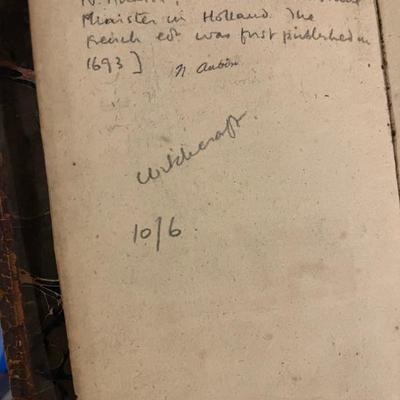 Minister in Holland. The
French edn. was first published in
1693]
N Aubin
Witchcraft.
10/6